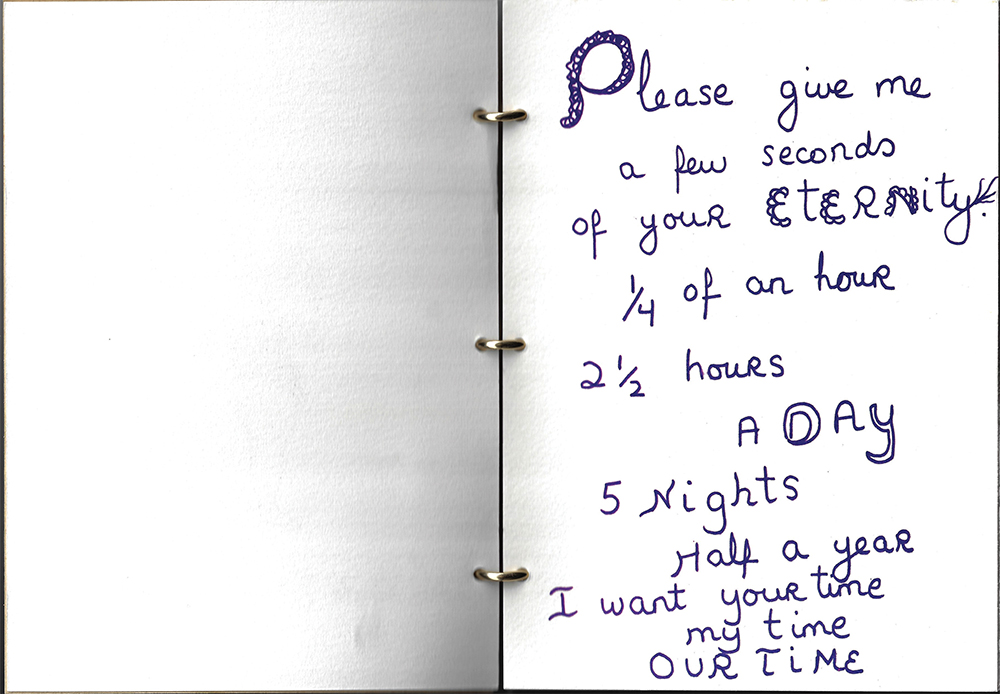 Please give me
a few seconds
of your EtERNity!
1/4 of an hour
2 1/2 hours
A DAy
5 Nights
Half a year
I want your time
my time
OUR TiME